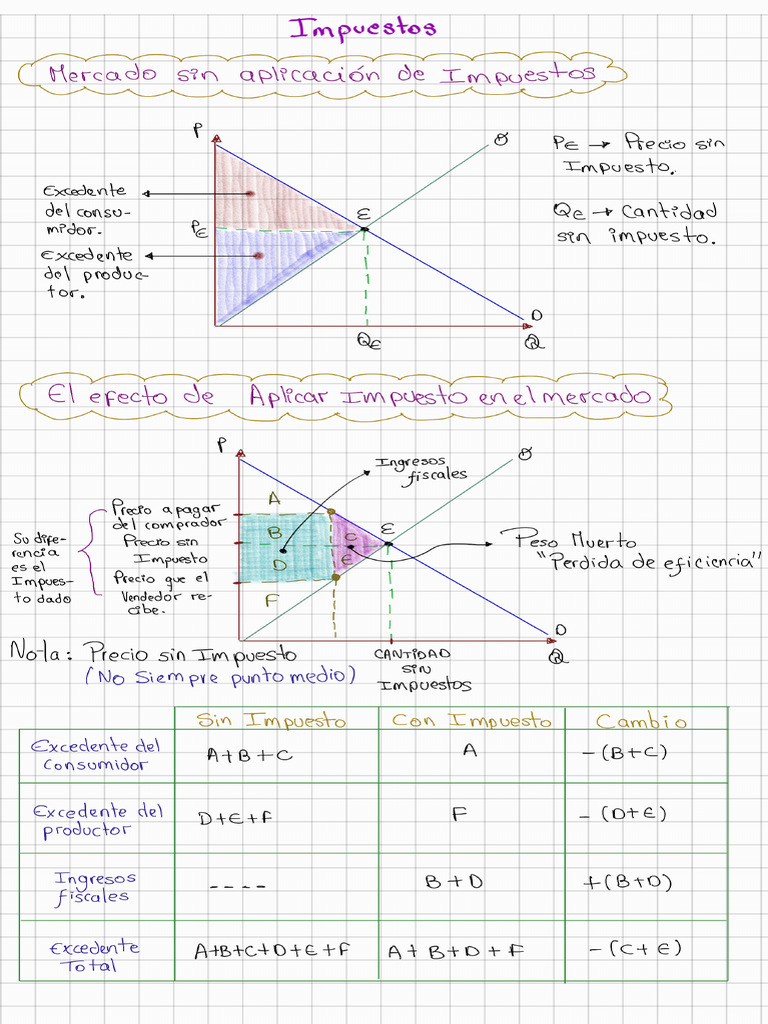 Impuestos
Mercado sin aplicación de Impuestos
P
O
PE → Precio sin
Impuesto.
Excedente
del consu-
midor.
E
PE
QE → Cantidad
sin impuesto.
Excedente
del produc-
tor.
D
QE
Q
El efecto de Aplicar Impuesto en el mercado
P
O
Ingresos
fiscales
A
Precio a pagar
del comprador
Su dife-
rencia
es el
Impues-
to dado
Precio sin
Impuesto
Precio que el
Vendedor re-
cibe.
B
C
E
D
E
F
Peso Muerto
"Perdida de eficiencia"
D
Q
Nota: Precio sin Impuesto
(No Siempre punto medio)
CANTIDAD
SIN
Impuestos
Sin Impuesto Con Impuesto Cambio
Excedente del
consumidor
A+B+C A -(B+C)
Excedente del
productor
D+E+F F -(D+E)
Ingresos
fiscales
---- B+D +(B+D)
Excedente
Total
A+B+C+D+E+F A+B+D+F -(C+E)